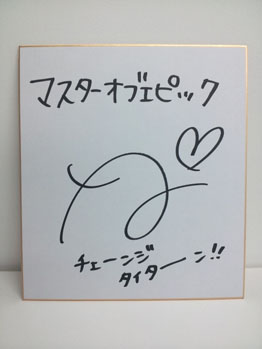 マスターオブエピック
チェーンジ
タイターン!!